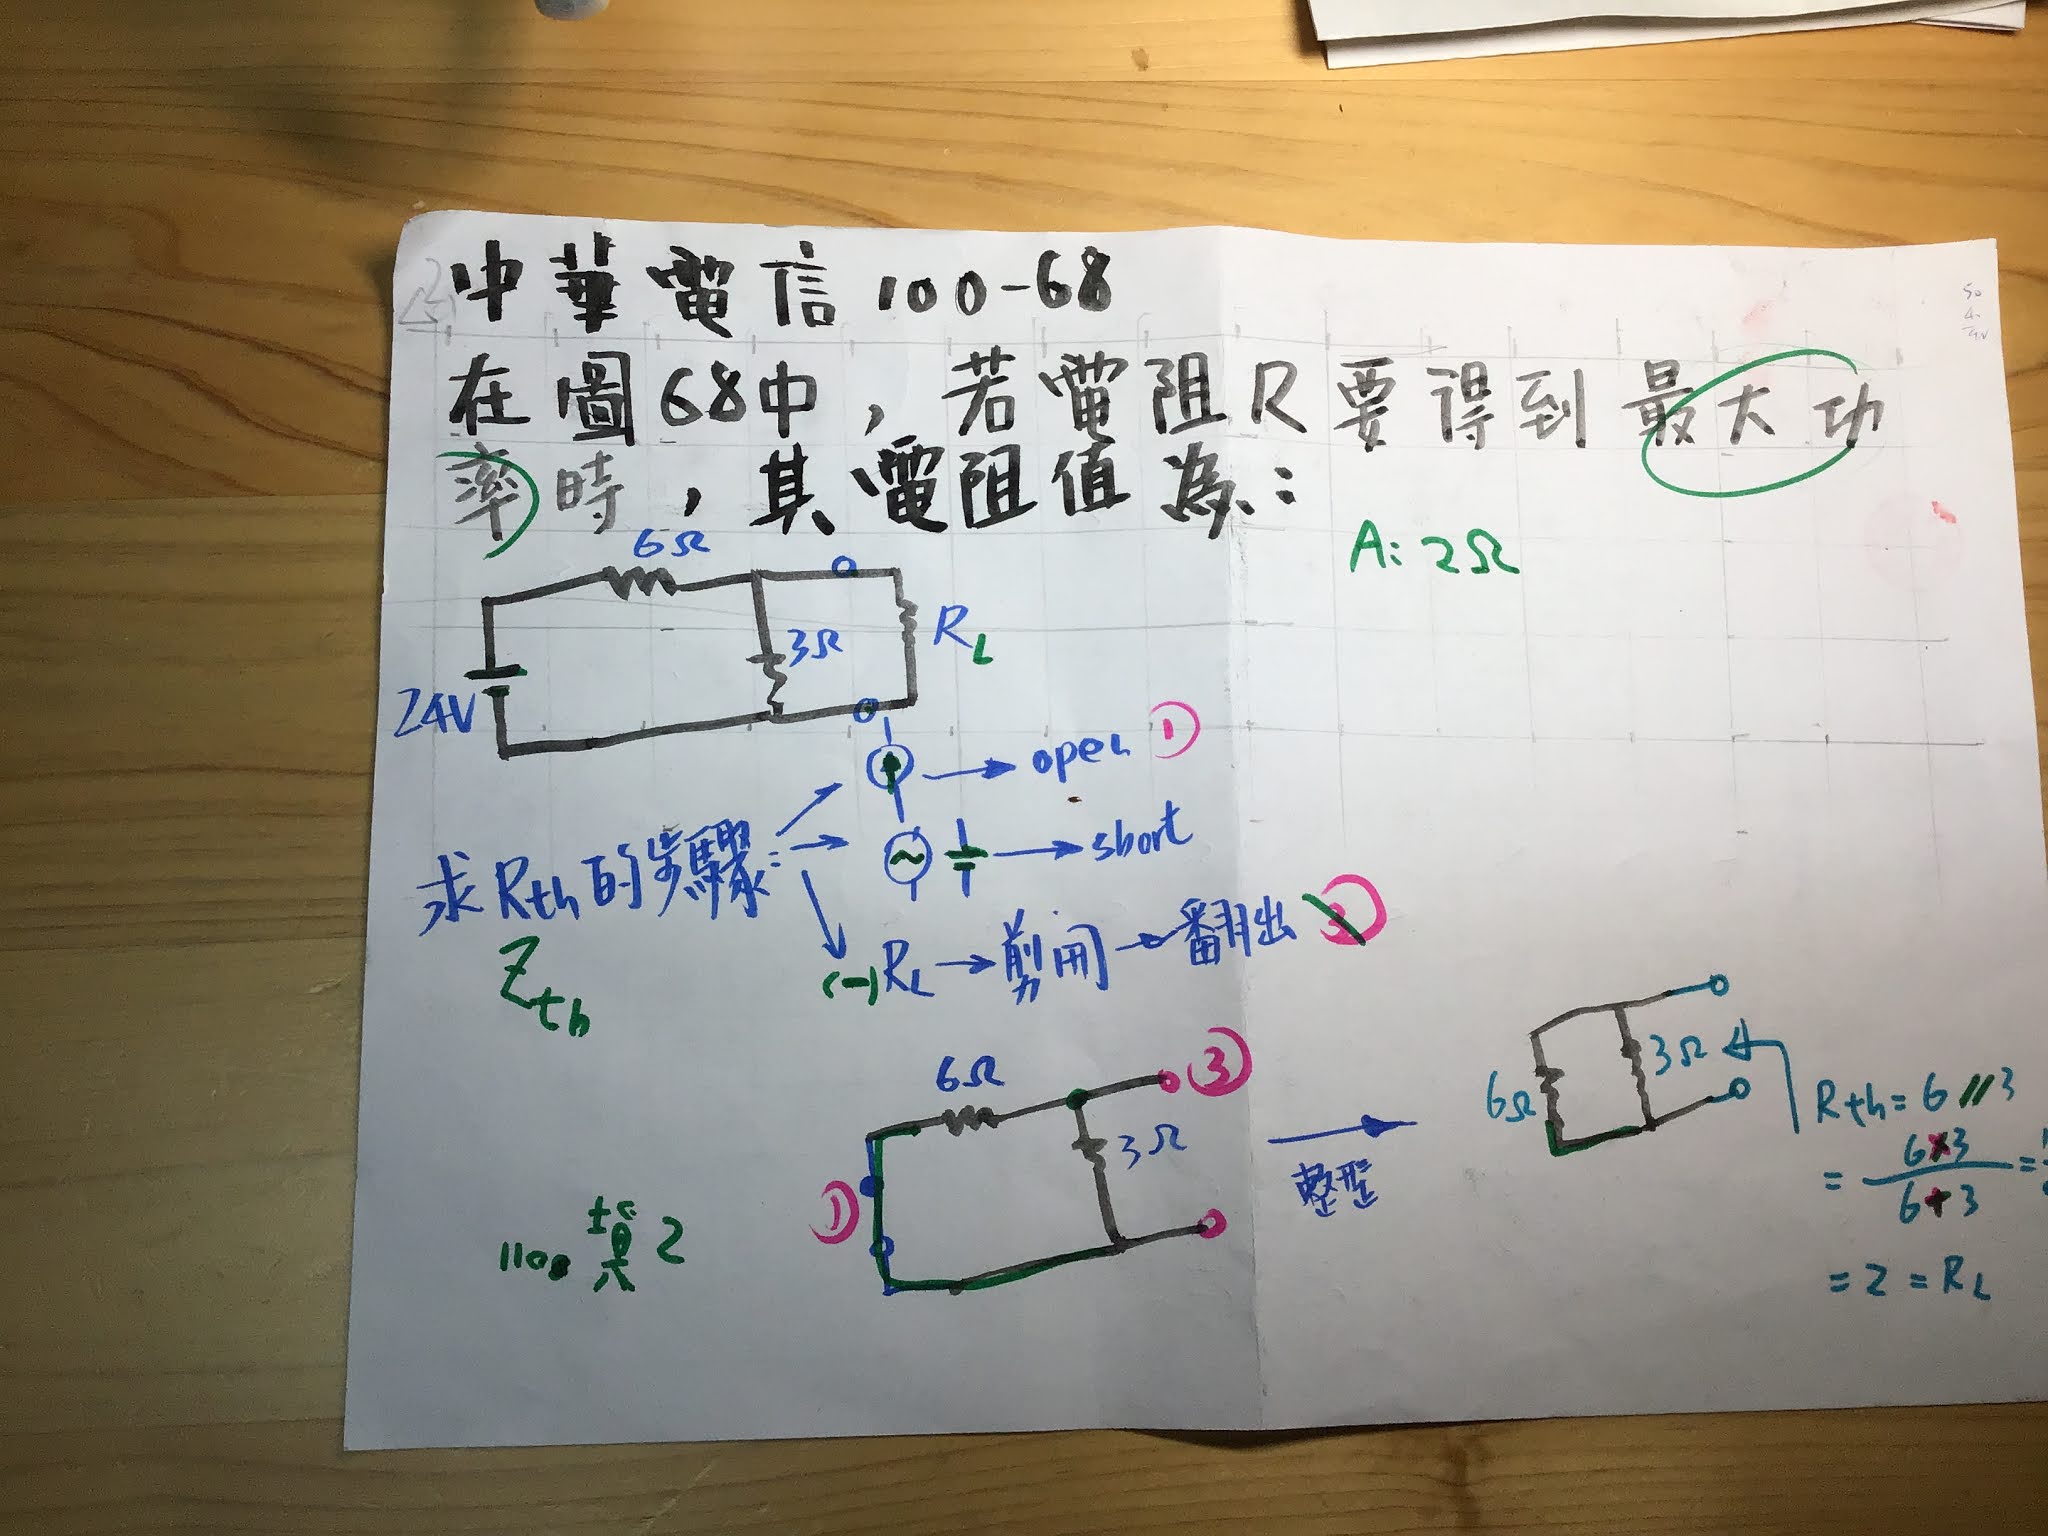 中華電信100-68
在圖68中,若電阻R要得到最大功
率時,其電阻值為:
A: 2Ω
6Ω
3Ω
RL
24V
open ①
short
求Rth的步驟:
Zth
(-)RL→剪開→翻出
6Ω
③
3Ω
①
整型
6Ω
3Ω
Rth = 6 // 3
= 6×3 / 6+3 =
= 2 = RL